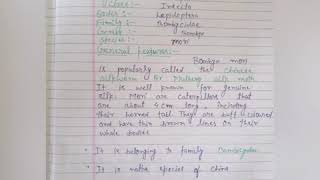 Class:- Insecta
Order:- Lepidoptera
Family:- Bombycidae
Genus:- Bombyx
Species:- mori
General features:-
Bombyx mori
is popularly called the chinese
silkworm or Mulberry silk moth
It is well known for genuine
silk. Mori are caterpillars that
are about 4 cm long, including
their horned tail. They are buff coloured
and have thin brown lines on their
whole bodies
• It is belonging to family
• It is native special of China